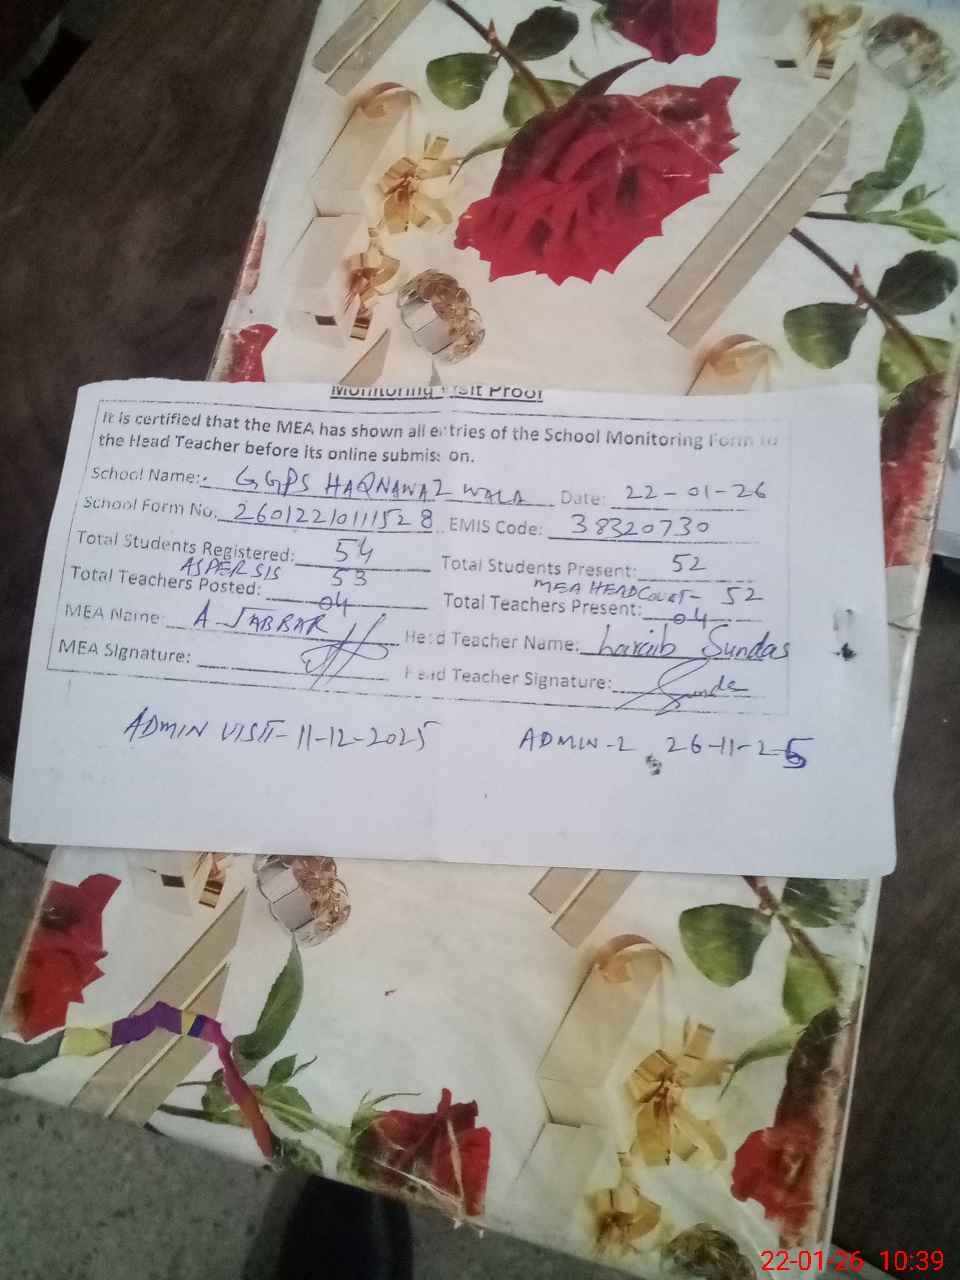 Monitoring Visit Proof
It is certified that the MEA has shown all entries of the School Monitoring Form to
the Head Teacher before its online submission.
School Name: GGPS HAQNAWAZ WALA Date: 22-01-26
School Form No. 26012210111528 EMIS Code: 38320730
Total Students Registered: 54 Total Students Present: 52
AS PER SIS 53 MEA HEADCOUNT- 52
Total Teachers Posted: 04 Total Teachers Present: 04
MEA Name: A-JABBAR Head Teacher Name: Laraib Sundas
MEA Signature: Head Teacher Signature: Sunda
ADMIN VISIT-11-12-2025 ADMIN-2 26-11-25
22-01-26 10:39